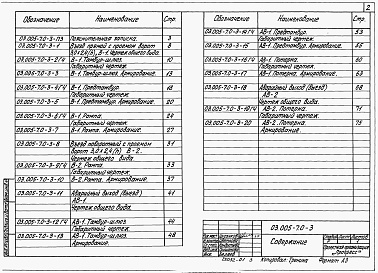 2
Обозначение Наименование Стр.
03.005-7.0-3-ПЗ Пояснительная записка. 3
03.005-7.0-3-1 Въезд прямой с проемом ворот 8
3,0×2,4(h), В-1. Чертеж общего вида.
03.005-7.0-3-2ГЧ В-1. Тамбур-шлюз. 10
Габаритный чертеж.
03.005-7.0-3-3 В-1. Тамбур-шлюз. Армирование. 13
03.005-7.0-3-4ГЧ В-1. Предтамбур. 18
Габаритный чертеж.
03.005-7.0-3-5 В-1. Предтамбур. Армирование. 20
03.005-7.0-3-6ГЧ В-1. Рампа. 24
Габаритный чертеж.
03.005-7.0-3-7 В-1. Рампа. Армирование. 27
03.005-7.0-3-8 Въезд поворотный с проемом 31
3,0×2,4(h) В-2.
Чертеж общего вида.
03.005-7.0-3-9ГЧ В-2. Рампа. 33
Габаритный чертеж.
03.005-7.0-3-10 В-2. Рампа. Армирование. 37
03.005-7.0-3-11 Аварийный выход (въезд) 41
АВ-1.
Чертеж общего вида.
03.005-7.0-3-12ГЧ АВ-1. Тамбур-шлюз. 44
Габаритный чертеж.
03.005-7.0-3-13 АВ-1. Тамбур-шлюз. 48
Армирование.
Обозначение Наименование Стр.
03.005-7.0-3-14ГЧ АВ-1. Предтамбур. 53
Габаритный чертеж.
03.005-7.0-3-15 АВ-1. Предтамбур. Армирование. 56
03.005-7.0-3-16ГЧ АВ-1. Потерна. 60
Габаритный чертеж.
03.005-7.0-3-17 АВ-1. Потерна. Армирование. 63
03.005-7.0-3-18 Аварийный выход (въезд) 68
АВ-2.
Чертеж общего вида.
03.005-7.0-3-19ГЧ АВ-2. Потерна. 71
Габаритный чертеж.
03.005-7.0-3-20 АВ-2. Потерна. 75
Армирование.
03.005-7.0-3
Содержание
Стадия Лист Листов
Проектная организация
"Прогресс"
Копировал Гренина Формат А3